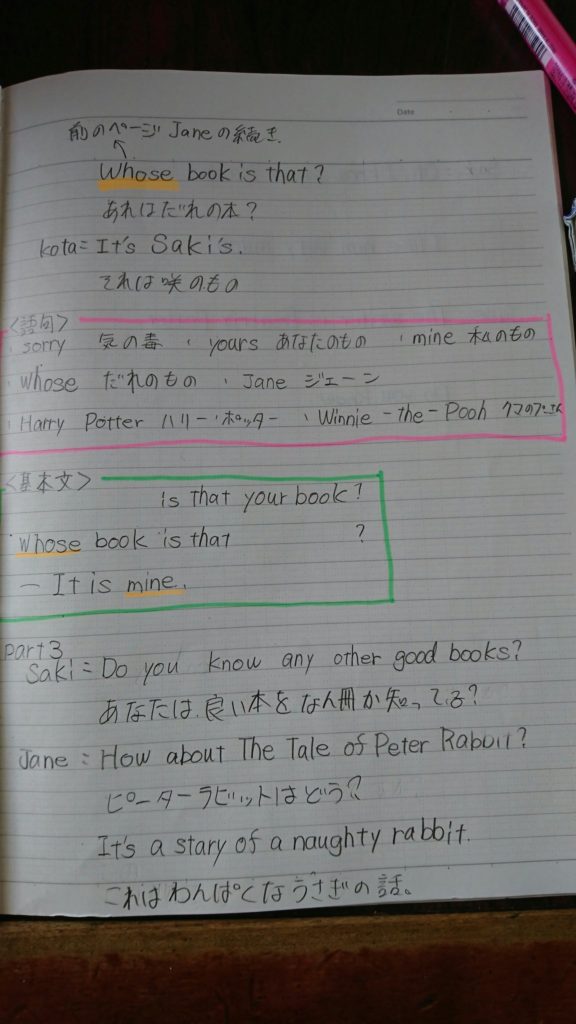 Date
前のページJaneの続き
Whose book is that?
あれはだれの本?
kota=It's Saki's.
それは咲のもの
<語句>
・sorry 気の毒 ・yours あなたのもの ・mine 私のもの
・whose だれのもの ・Jane ジェーン
・Harry Potter ハリー・ポッター ・Winnie-the-Pooh クマのプーさん
<基本文>
is that your book?
whose book is that ?
— It is mine.
part3
Saki=Do you know any other good books?
あなたは、良い本をなん冊か知ってる?
Jane=How about The Tale of Peter Rabbit?
ピーターラビットはどう?
It's a stary of a naughty rabbit.
これはわんぱくなうさぎの話。